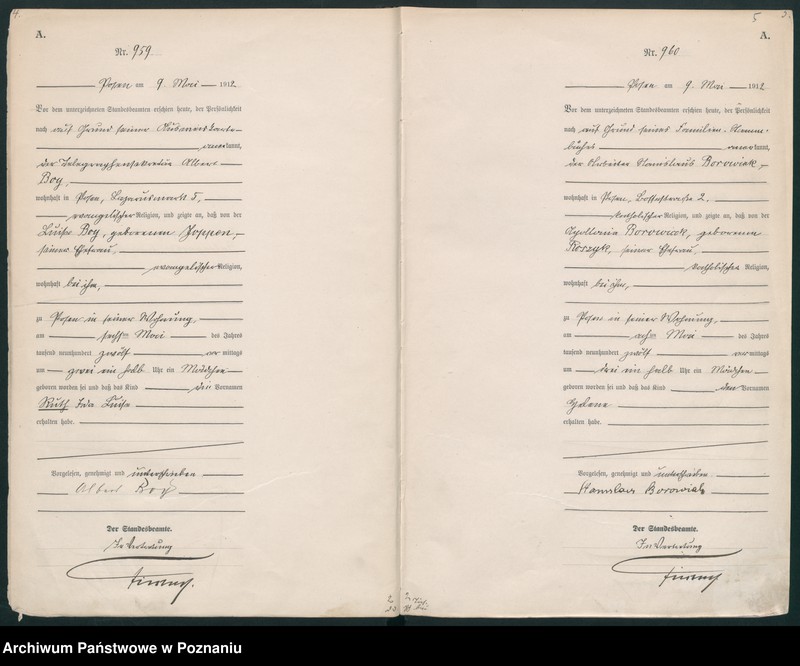 4.
A.
Nr. 959
Posen am 9. Mai 1912
Vor dem unterzeichneten Standesbeamten erschien heute, der Persönlichkeit
nach auf Grund seiner Ausweiskarte
anerkannt,
der Telegraphensekretär Albert
Boy,
wohnhaft in Posen, Lazarusmarkt 5,
evangelischer Religion, und zeigte an, daß von der
Luise Boy, geborenen Joppen,
seiner Ehefrau,
evangelischer Religion,
wohnhaft bei ihm,
zu Posen in seiner Wohnung,
am sechsten Mai des Jahres
tausend neunhundert zwölf vormittags
um zwei ein halb Uhr ein Mädchen
geboren worden sei und daß das Kind den Vornamen
Ruth Ida Luise
erhalten habe.
Vorgelesen, genehmigt und unterschrieben
Albert Boy
Der Standesbeamte.
In Vertretung
5
A.
Nr. 960
Posen am 9. Mai 1912
Vor dem unterzeichneten Standesbeamten erschien heute, der Persönlichkeit
nach auf Grund seines Familien-Stamm-
buches anerkannt,
der Arbeiter Stanislaus Borowiak,
wohnhaft in Posen, 2.
katholischer Religion, und zeigte an, daß von der
Apollonia Borowiak, geborenen
Koszyk, seiner Ehefrau,
katholischer Religion,
wohnhaft bei ihm,
zu Posen in seiner Wohnung,
am achten Mai des Jahres
tausend neunhundert zwölf vormittags
um drei ein halb Uhr ein Mädchen
geboren worden sei und daß das Kind den Vornamen
Helene
erhalten habe.
Vorgelesen, genehmigt und unterschrieben
Stanislaus Borowiak
Der Standesbeamte.
In Vertretung
Archiwum Państwowe w Poznaniu